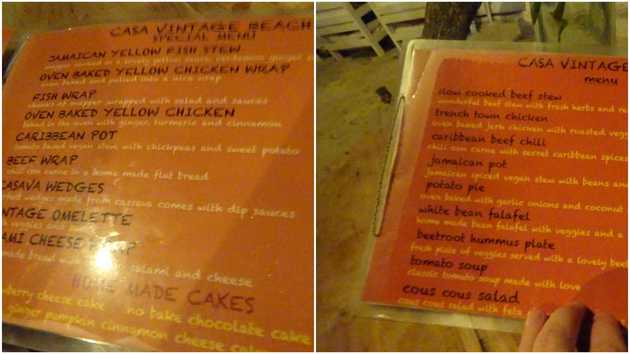 CASA VINTAGE BEACH
SPECIAL MENU
JAMAICAN YELLOW FISH STEW
in a lovely yellow sauce
OVEN BAKED YELLOW CHICKEN WRAP
oven baked and pulled into a nice wrap
FISH WRAP
chunks of snapper wrapped with salad and sauces
OVEN BAKED YELLOW CHICKEN
baked in the oven with ginger, turmeric and cinnamon
CARIBBEAN POT
tomato based vegan stew with chickpeas and sweet potato
BEEF WRAP
chili con carne in a home made flat bread
CASAVA WEDGES
wedges made from cassava comes with dip sauces
NTAGE OMELETTE
veggies and
AMI CHEESE WRAP
made bread salami and cheese
HOME MADE CAKES
berry cheese cake no bake chocolate cake
ginger pumpkin cinnamon cheese
CASA VINTAGE
menu
slow cooked beef stew
wonderful beef stew with fresh herbs and
trench town chicken
oven baked jerk chicken with roasted
caribbean beef chili
chili con carne with secret caribbean spices
jamaican pot
jamaican spiced vegan stew with beans and
potato pie
oven baked with garlic onions and coconut
white bean falafel
home made bean falafel with veggies and a
beetroot hummus plate
fresh plate of veggies served with a lovely
tomato soup
classic tomato soup made with love
cous cous salad
cous cous salad with feta